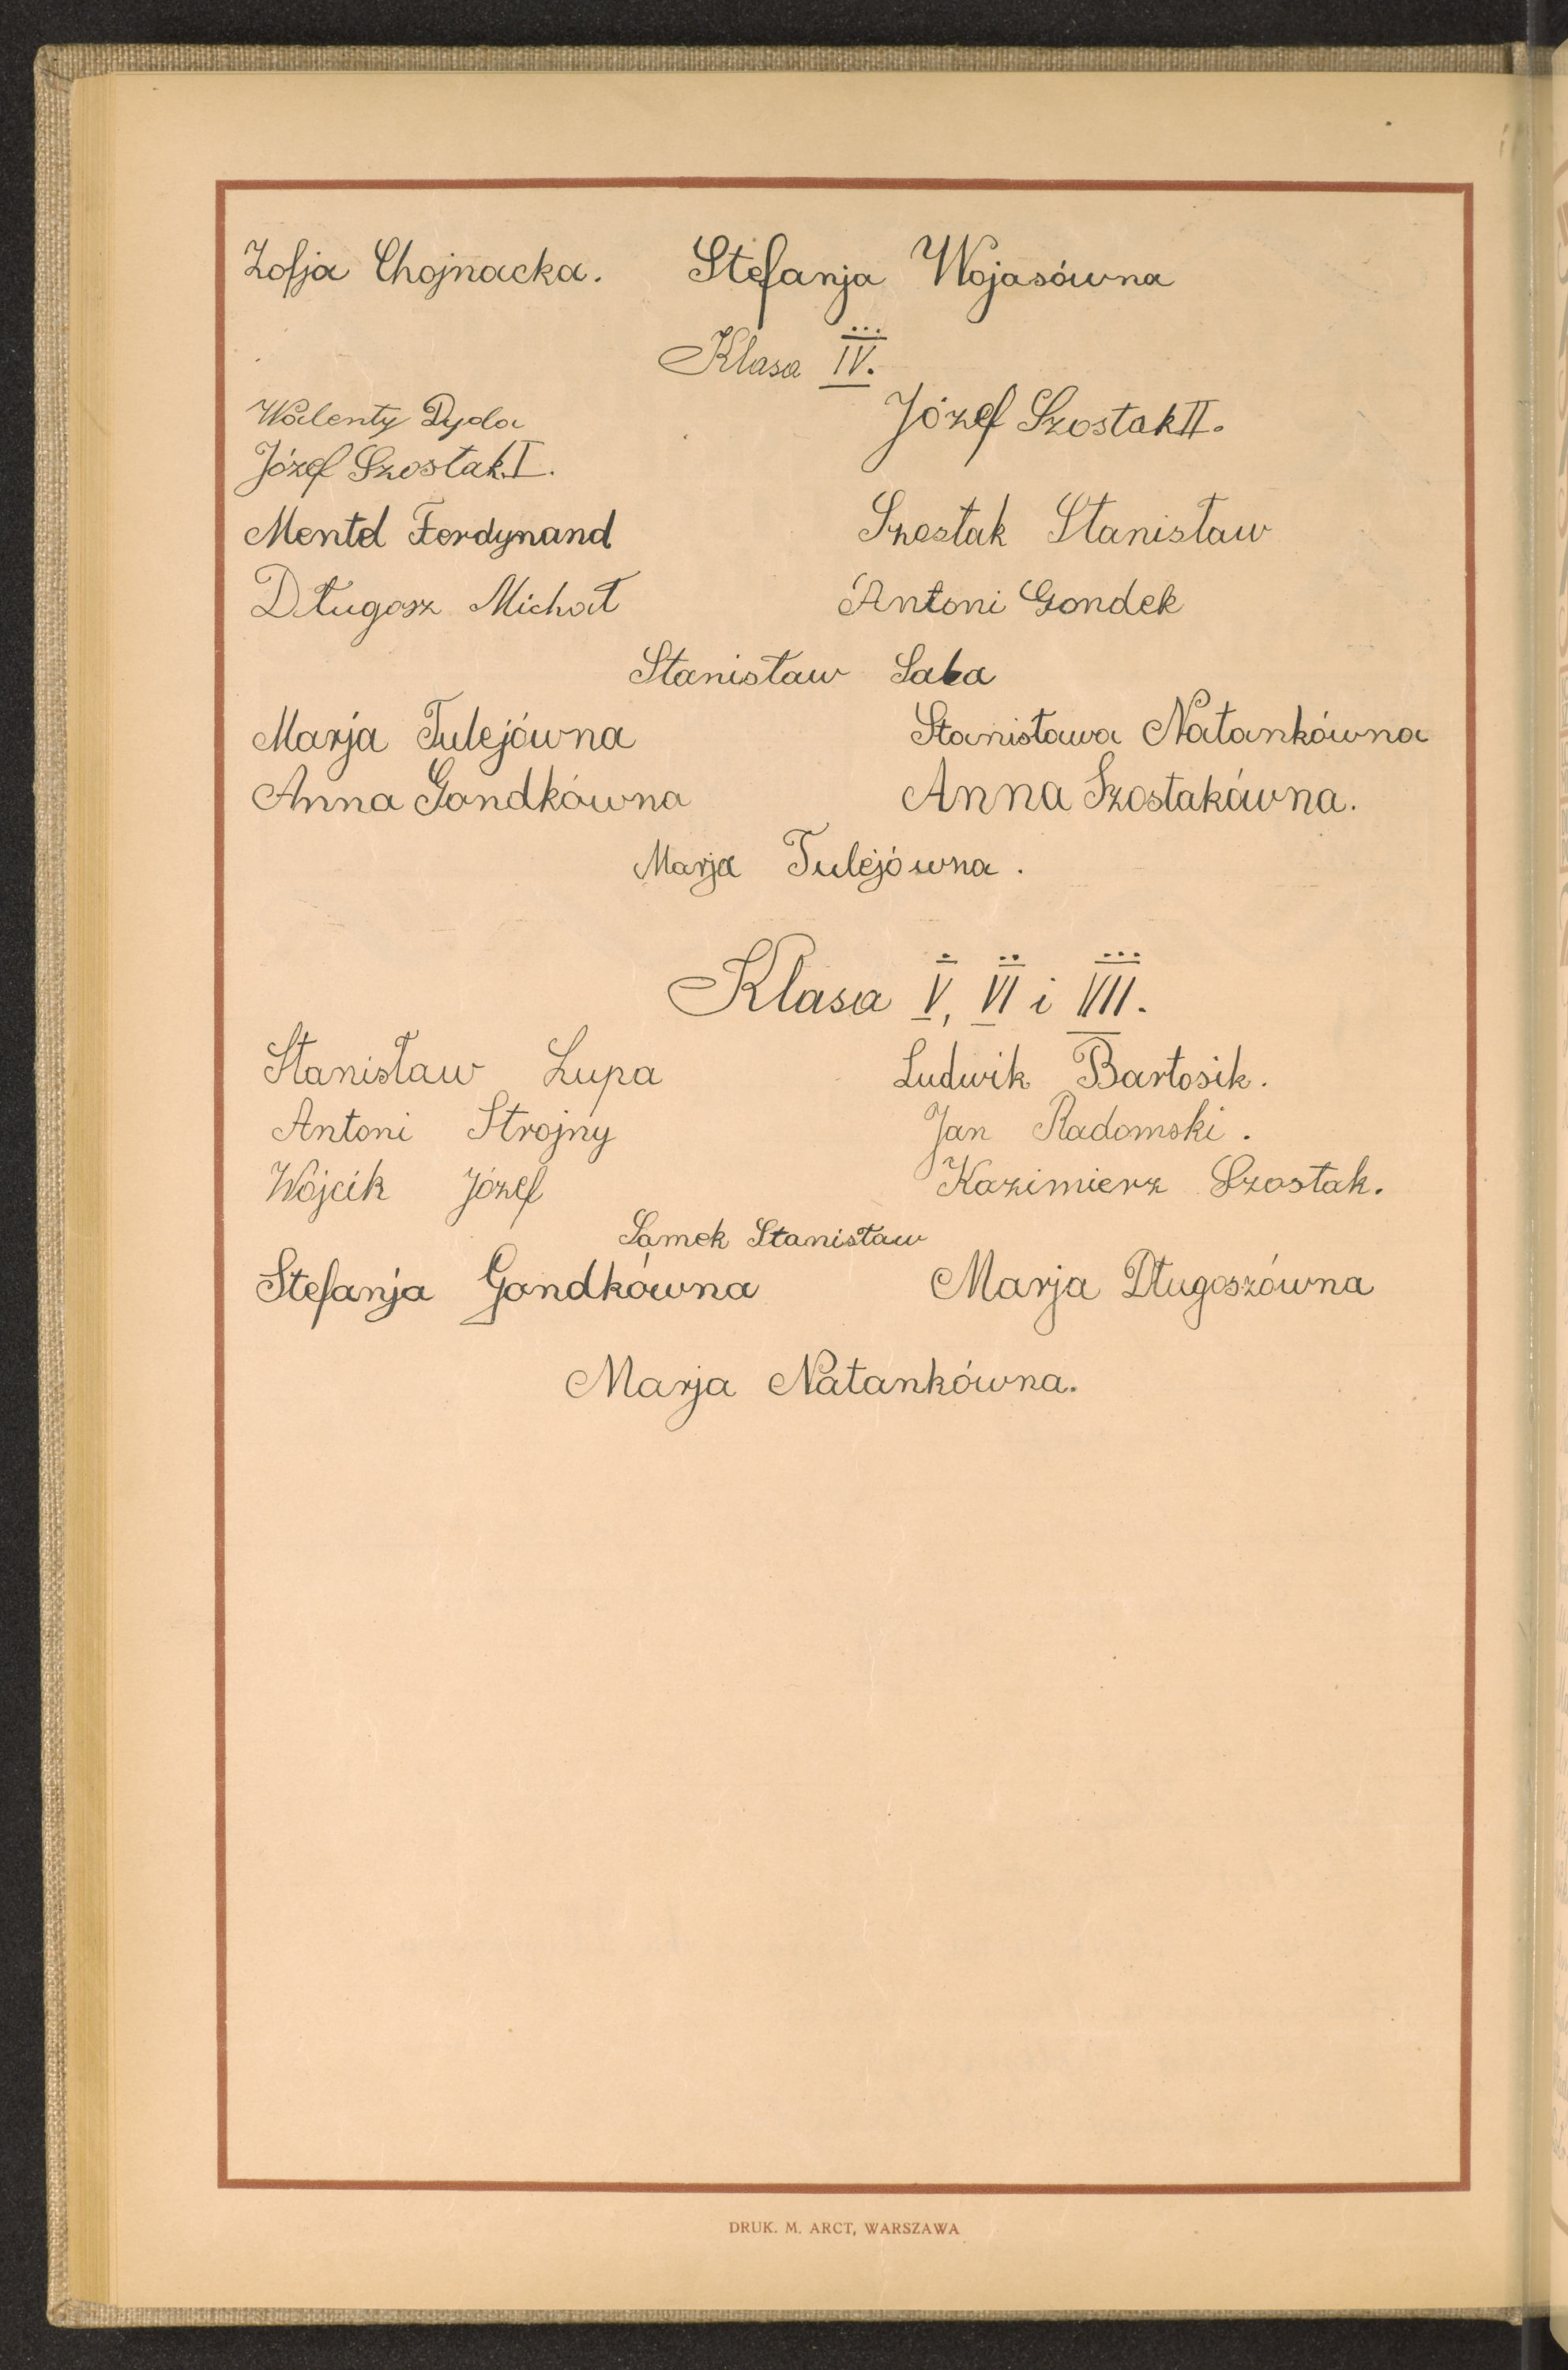 Zofja Chojnacka. Stefanja Wojasówna
Klasa IV.
Walenty Dyda Józef Szostak II.
Józef Szostak I.
Mentel Ferdynand Szostak Stanisław
Długosz Michał Antoni Gondek
Stanisław Saba
Marja Tulejówna Stanisława Natankówna
Anna Gondkówna Anna Szostakówna.
Marja Tulejówna.
Klasa V, VI i VII.
Stanisław Lupa Ludwik Bartosik.
Antoni Strojny Jan Radomski.
Wójcik Józef Kazimierz Szostak.
Samek Stanisław
Stefanja Gondkówna Marja Długoszówna
Marja Natankówna.
DRUK. M. ARCT, WARSZAWA